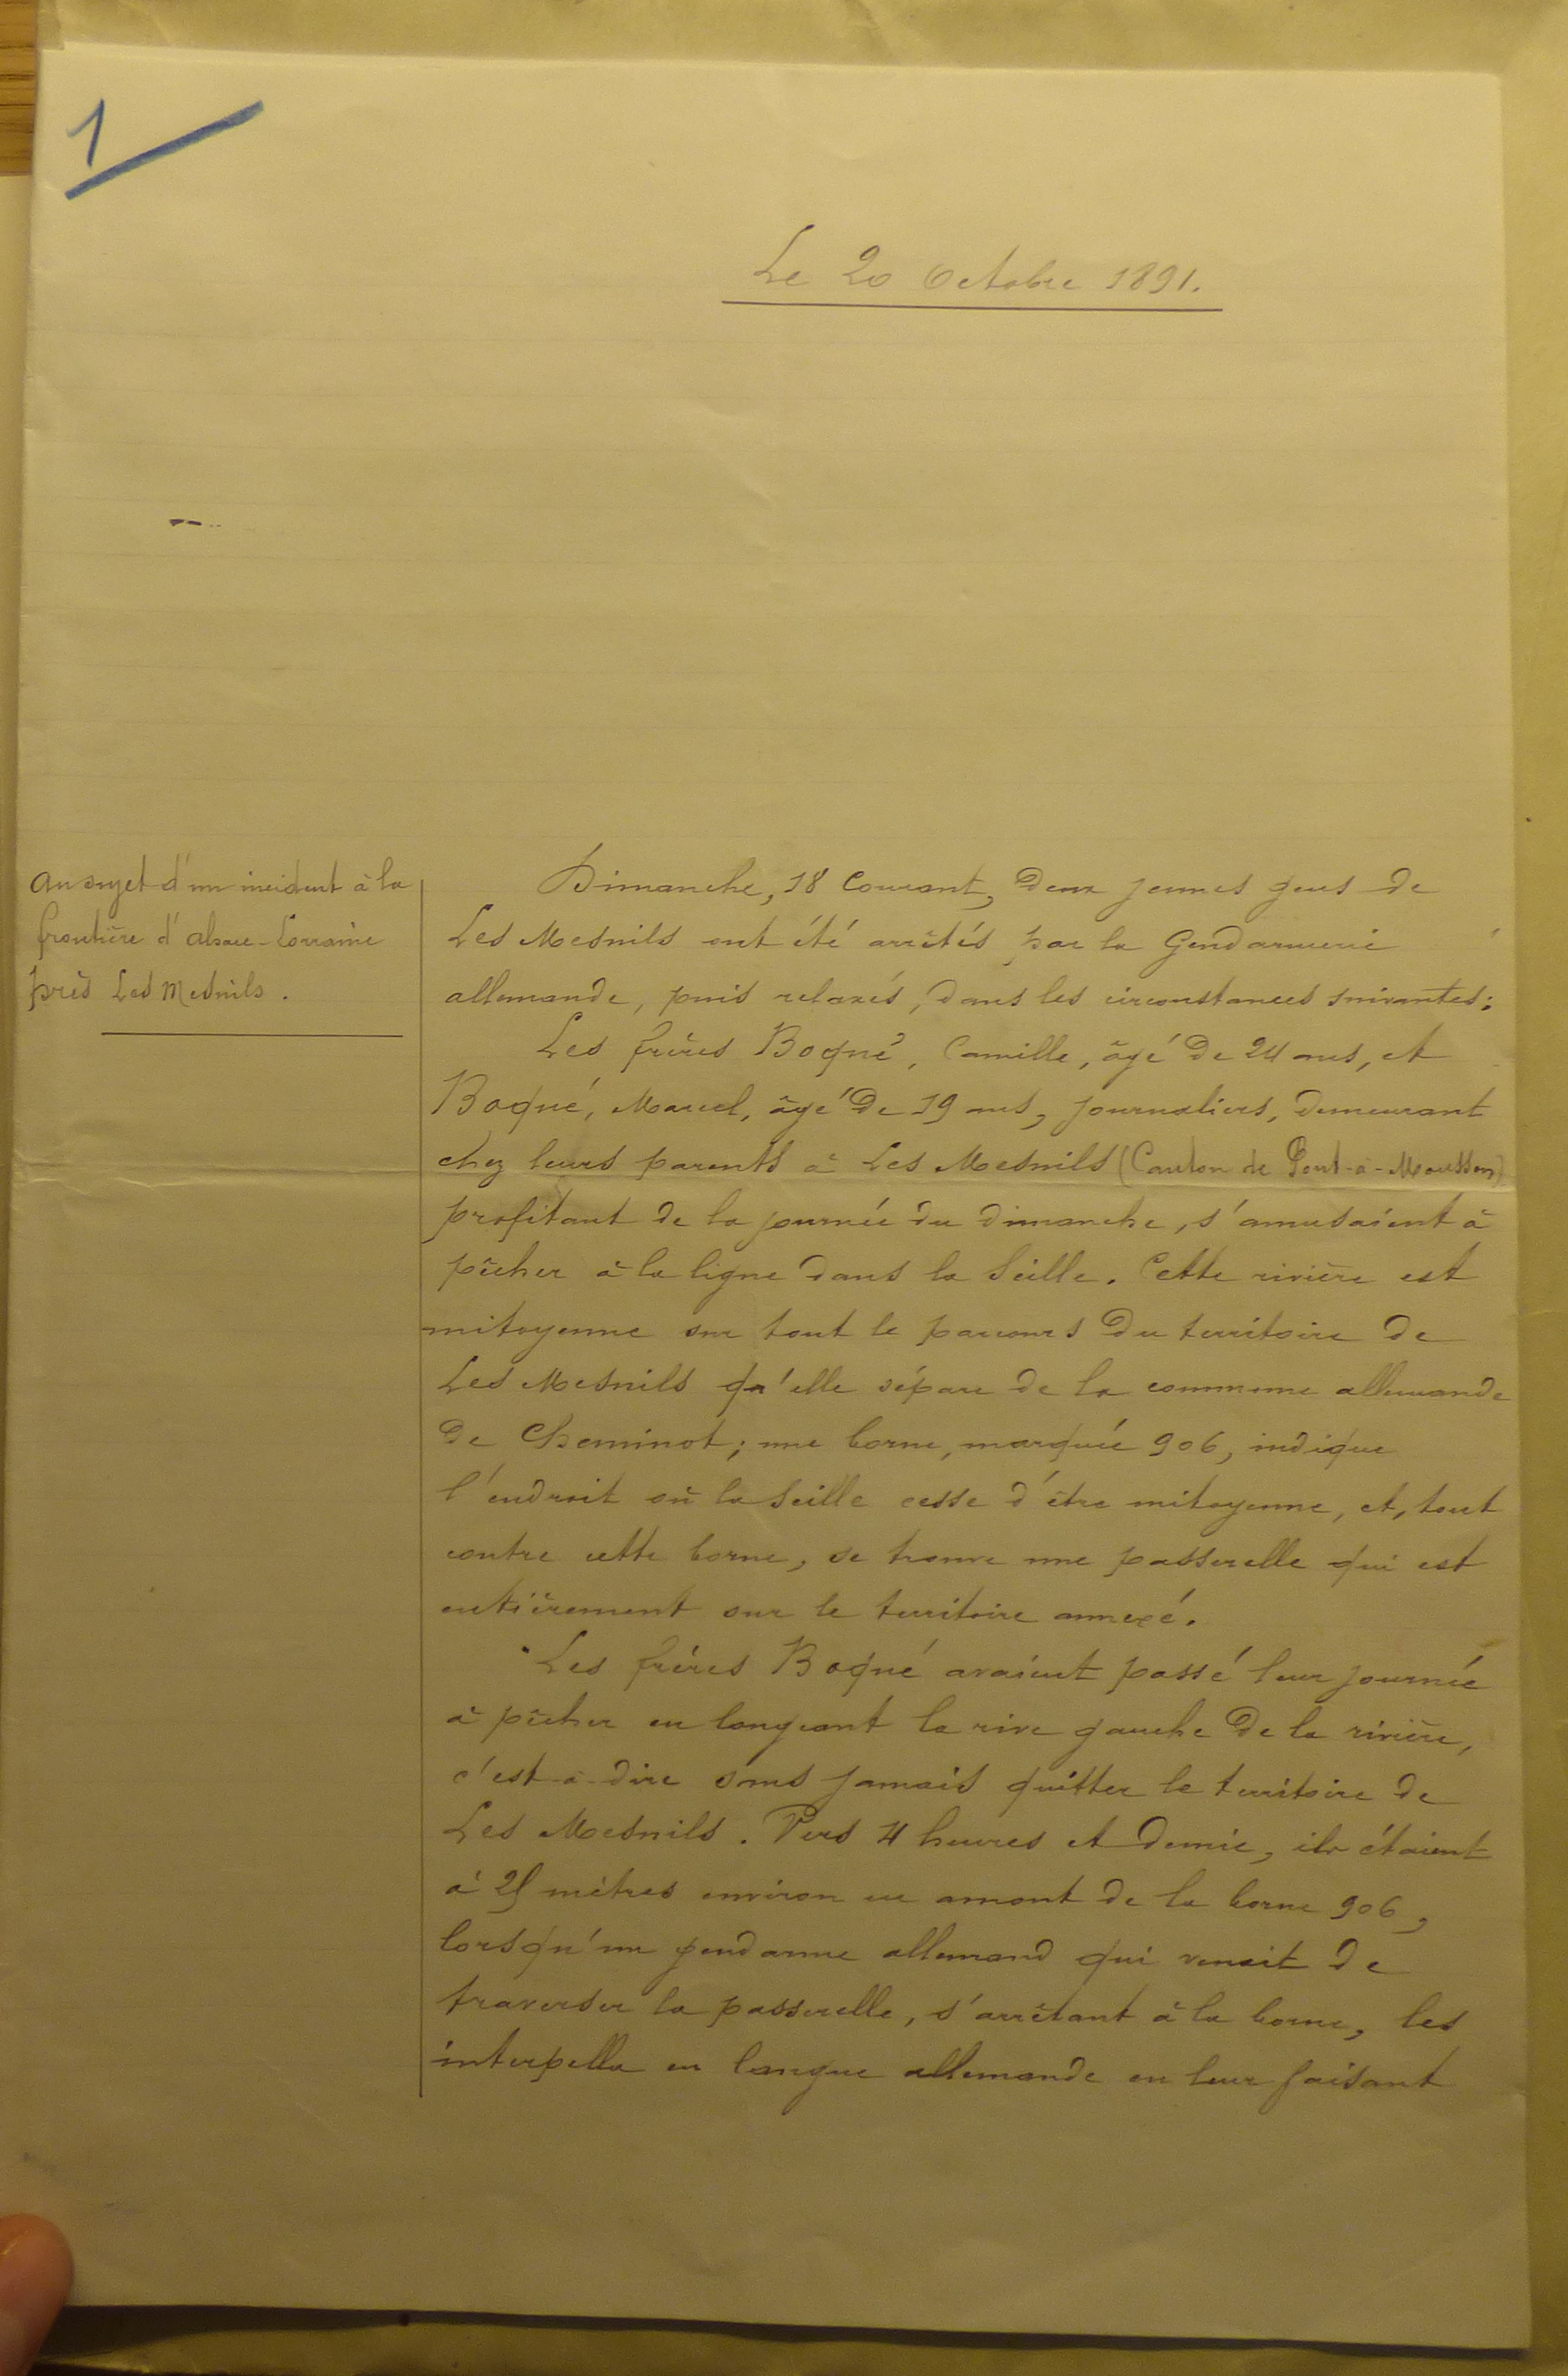 1
Le 20 Octobre 1891.
au sujet d'un incident à la
frontière d'alsace-Lorraine
près Les Mesnils.
Dimanche, 18 Courant, deux jeunes gens de
Les Mesnils ont été arrêtés par la Gendarmerie
allemande, puis relaxés, dans les circonstances suivantes:
Les frères Boqué, Camille, âgé de 24 ans, et
Boqué, Marcel, âgé de 19 ans, journaliers, demeurant
chez leurs parents à Les Mesnils (Canton de Pont-à-Mousson)
profitant de la journée du dimanche, s'amusaient à
pêcher à la ligne dans la Seille. Cette rivière est
mitoyenne sur tout le parcours du territoire de
Les Mesnils qu'elle sépare de la commune allemande
de Cheminot; une borne, marquée 906, indique
l'endroit où la Seille cesse d'être mitoyenne, et, tout
contre cette borne, se trouve une passerelle qui est
entièrement sur le territoire annexé.
Les frères Boqué avaient passé leur journée
à pêcher en longeant la rive gauche de la rivière,
c'est-à-dire sans jamais quitter le territoire de
Les Mesnils. Vers 4 heures et demie, ils étaient
à 25 mètres environ en amont de la borne 906,
lorsqu'un gendarme allemand qui venait de
traverser la passerelle, s'arrêtant à la borne, les
interpella en langue allemande en leur faisant